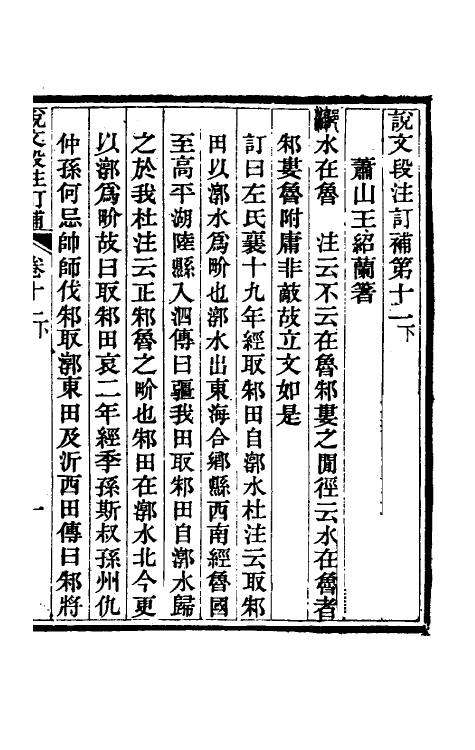 說文段注訂補第十一下
蕭山王紹蘭著
水在魯 注云不云在魯邾婁之閒徑云水在魯者
邾婁魯附庸非敵故立文如是
訂曰左氏襄十九年經取邾田自漷水杜注云取邾
田以漷水爲畍也漷水出東海合鄉縣西南經魯國
至高平湖陸縣入泗傳曰疆我田取邾田自漷水歸
之於我杜注云正邾魯之畍也邾田在漷水北今更
以漷爲畍故曰取邾田哀二年經季孫斯叔孫州仇
仲孫何忌帥師伐邾取漷東田及沂西田傳曰邾將
說文段注訂補 卷十一下 一